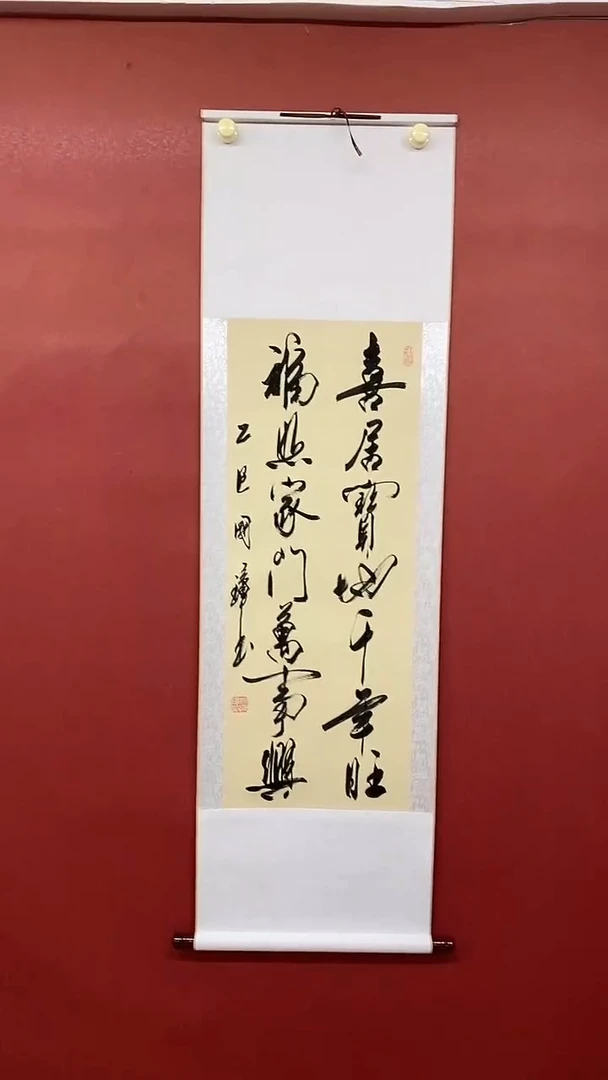 喜居寶地千年旺
福照家門萬事興
乙巳國
書